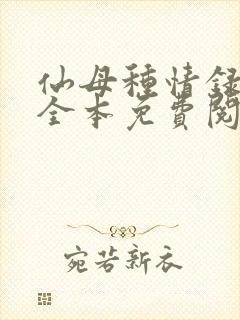 仙母種情録
全本免費閱
宛若新衣